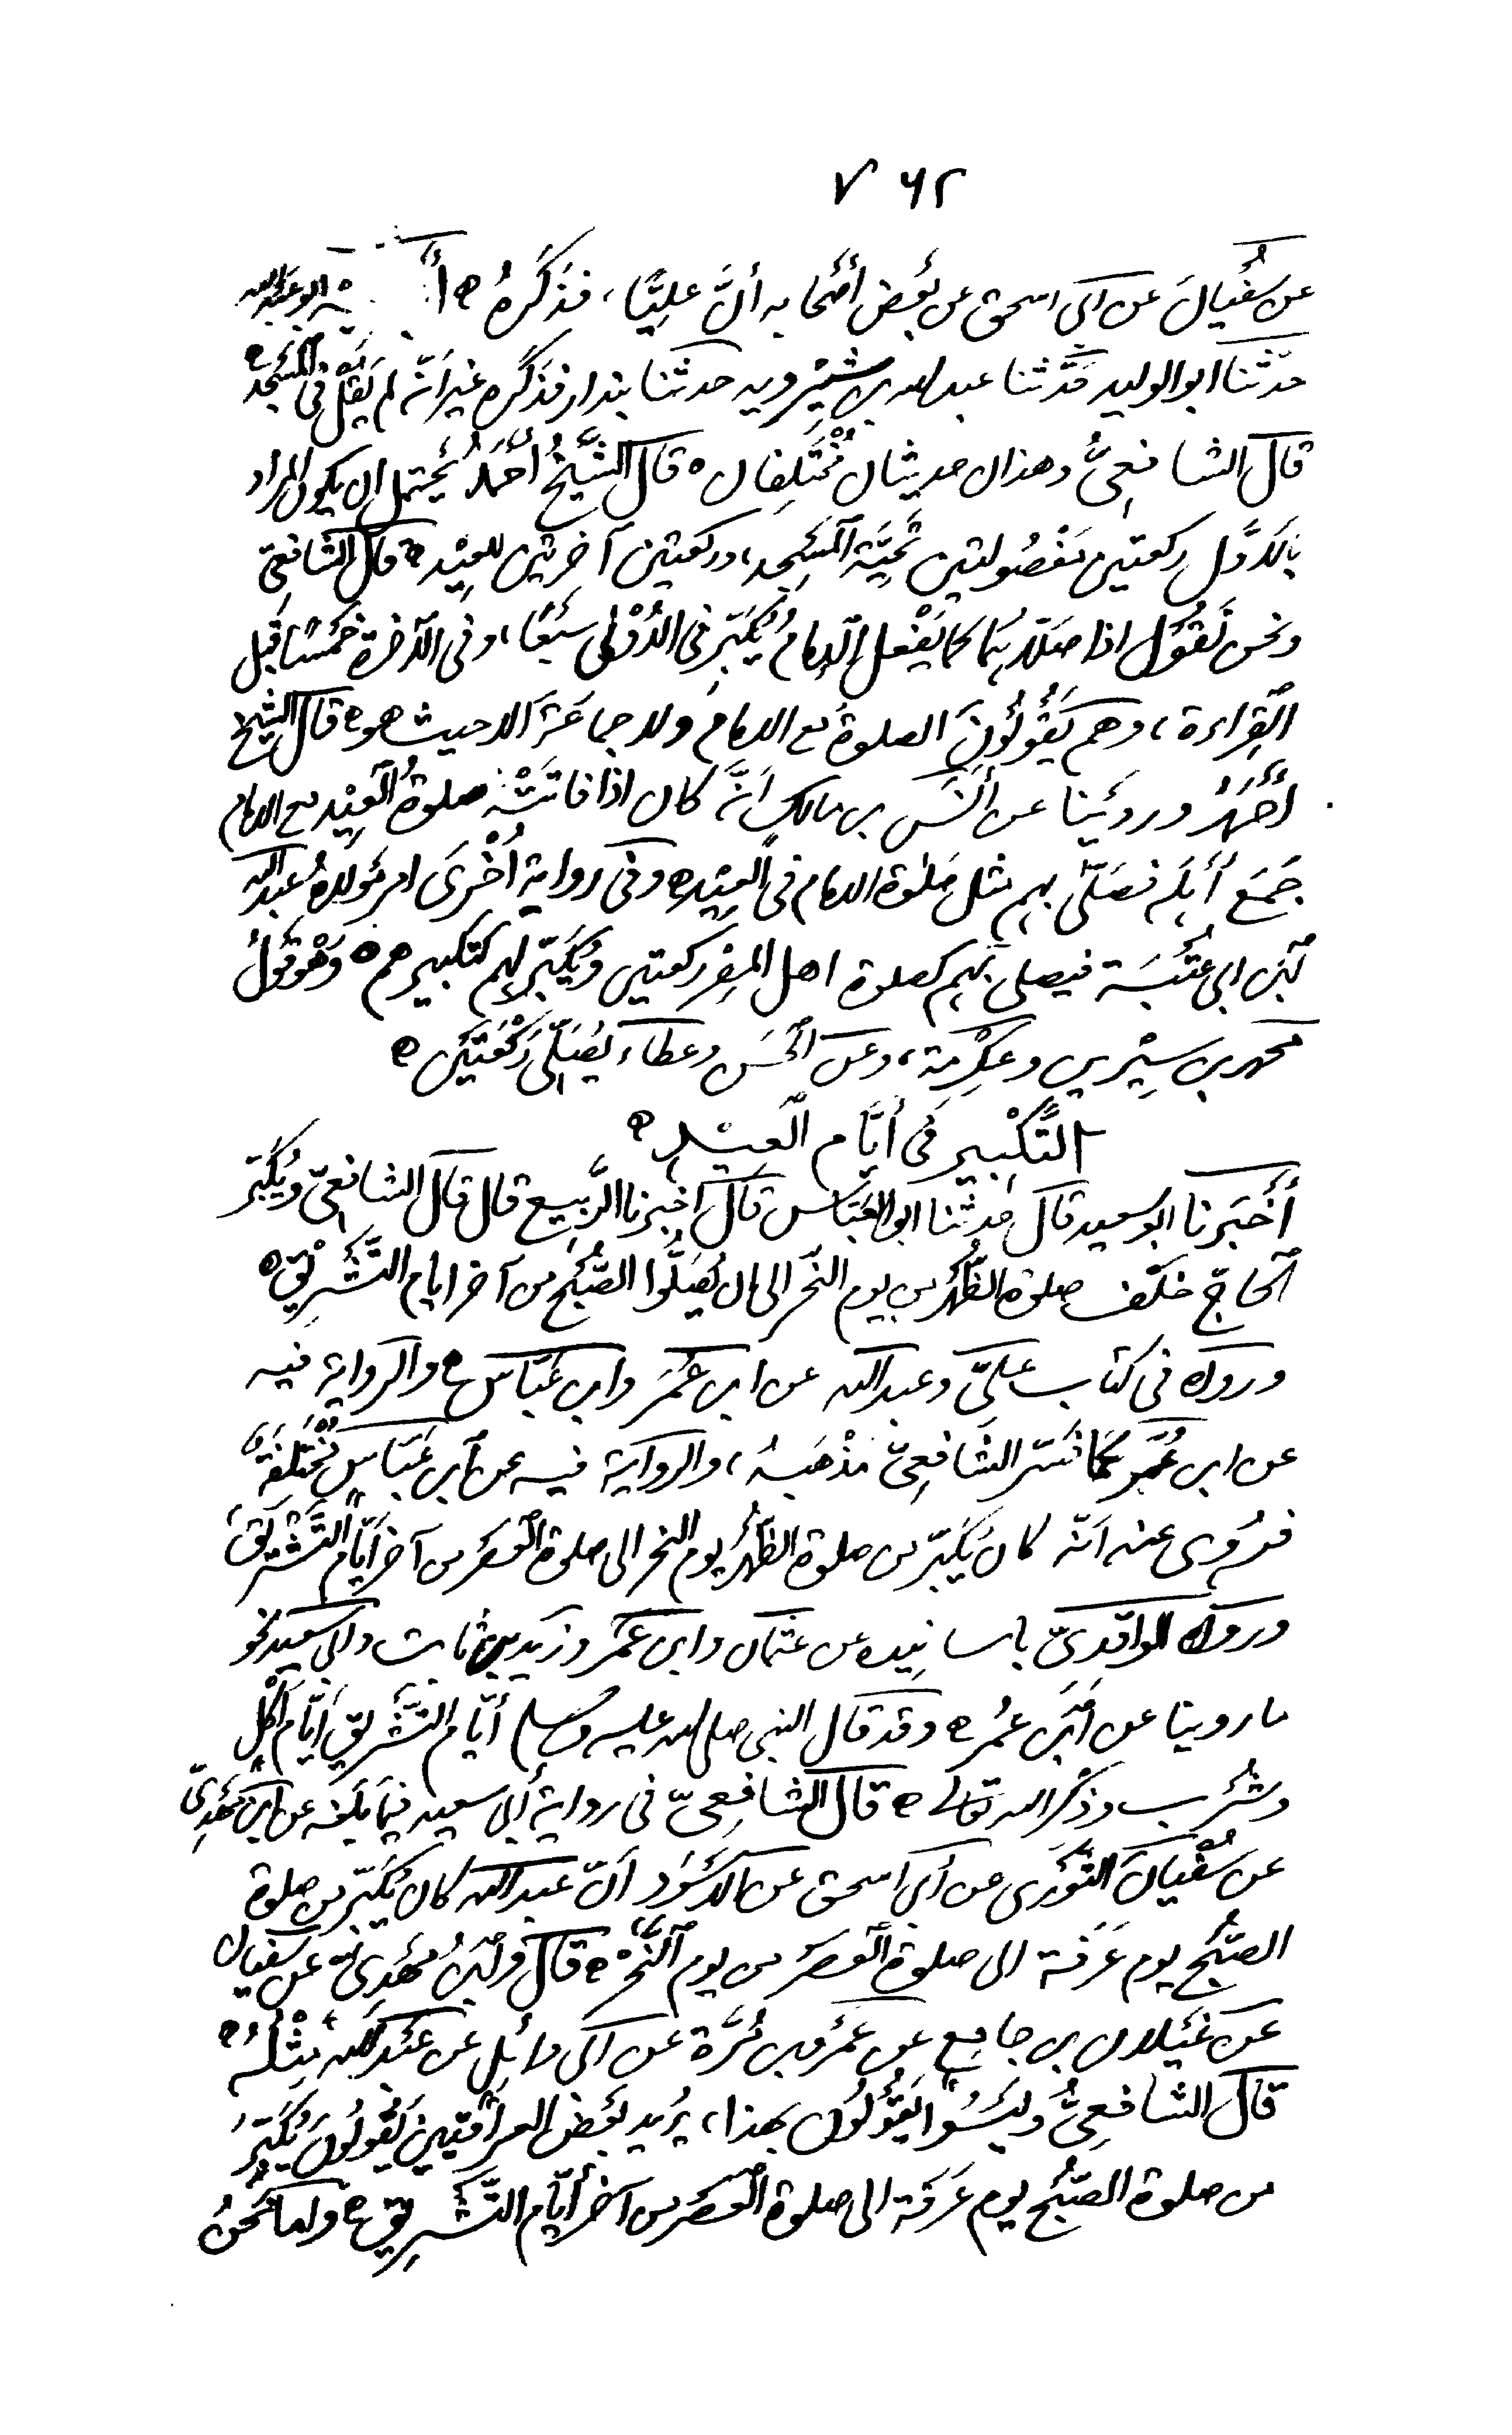 ٧٦٢
عن سُفْيانَ عن ابى اسحق عن بَعْض أصْحابه أنَّ عليًّا، فذكَرهُ ه أ به ابو عبدالله
حدّثنا ابو الوليد حَدَّثنا عبدالله بن شِيْرويه حدثنا بندار فذكره غير أنّه لم يَقُلْ فى المَسْجد ه
قال الشافعىُّ وهذان حديثان مُخْتَلِفان ه قال الشَّيْخُ أحْمَدُ يُحْتمل ان يكون المراد
بالأوّل ركعتين مَفْصُولتين تَحيَّة المَسْجد، وركعتين آخرتين للعِيْد ه قال الشافعىّ
ونحن نَقُوْل اذا صلّاهُما كما يَفْعل الإمامُ يُكَبّر فى الأُوْلى سَبْعًا، وفى الآخرة خَمْسًا قبل
القِراءة، وهم يَقُوْلُوْنَ الصلوةُ مع الامام ولا جماعَةَ الا حيث هو ه قال الشيخ
أحْمَدُ ورويْنا عن أنَس بن مالك انَّه كان اذا فاتَتْه صلوةُ العِيْد مع الامام
جَمَع أهْلَه فصَلّى بهم مثل صَلوة الامام فى العِيْد ه وفى رواية أُخْرَى امر مَوْلاهُ عبدالله
بْنَ ابى عُتْبَة فيصلى بهم كصلوة اهل المِصْر ركعتين ويُكَبّر بهم كتكبيرهم ه وَهُوَ قَوْلُ
محمد بن سِيْرين وعِكْرِمَة، وعن الحَسَن وعطاء يُصَلّى رَكْعَتَيْن ه
التَّكْبير فى أيَّام العِيْد ه
أخْبَرنا ابو سعيد قال حَدثنا ابو العَبّاس قال اخبرنا الرَّبيع قال قال الشافعىّ ويُكَبّر
الحَاجّ خَلْف صلوة الظُّهْر من يوم النَّحْر الى ان يُصَلُّوا الصُّبْح من آخر ايام التَّشْرِيْق ه
ورواه فى كتاب علىّ وعبدالله عن ابن عُمَر وابن عَبّاس ه والرواية فيه
عن ابن عُمَر كما فسّر الشَّافِعِىّ مَذْهَبَهُ، والرواية فيه عن ابن عَبّاس مُخْتَلِفَةٌ
فرُوِى عنه انّه كان يُكَبّر من صلوة الظُّهْر يوم النحر الى صلوة العَصْر من آخر أيّام التَّشْرِيْق،
ورواه الواقدىّ باسانِيْده عن عثمان وابن عُمَر وزَيد بن ثابت وابى سعيد نحو
ما روينا عن ابْن عُمَر ه وقد قال النبى صلى الله عليه وسلم أيّام التَّشْريق أيّام أكْل
وشُرْب وذِكْر الله تعالى ه قال الشافِعِىّ فى رواية أبى سعيد فيما بَلَغه عن ابن مَهْدِىّ
عن سُفْيان الثَّوْرى عن أبى اسحق عن الاسْوَد أنّ عبدالله كان يُكَبّر من صلوة
الصُّبْح يوم عَرَفَة الى صلوة العَصْر من يوم النَّحْر ه قال وابْنُ مَهْدِىّ عن سفيان
عن غَيْلان بن جامِع عن عَمْرو بن مُرَّة عن ابى وائِل عن عَبْد الله مِثْلَهُ ه
قال الشافعىُّ ولَيْسُوا يَقُوْلُوْن بهذا، يُرِيد بَعْض العراقيين يَقُوْلُوْنَ يُكَبّرُ
من صلوة الصُّبْح يوم عَرَفَة الى صلوة العَصْر من آخر أيّام التَّشْرِيْق ه واما نَحْنُ